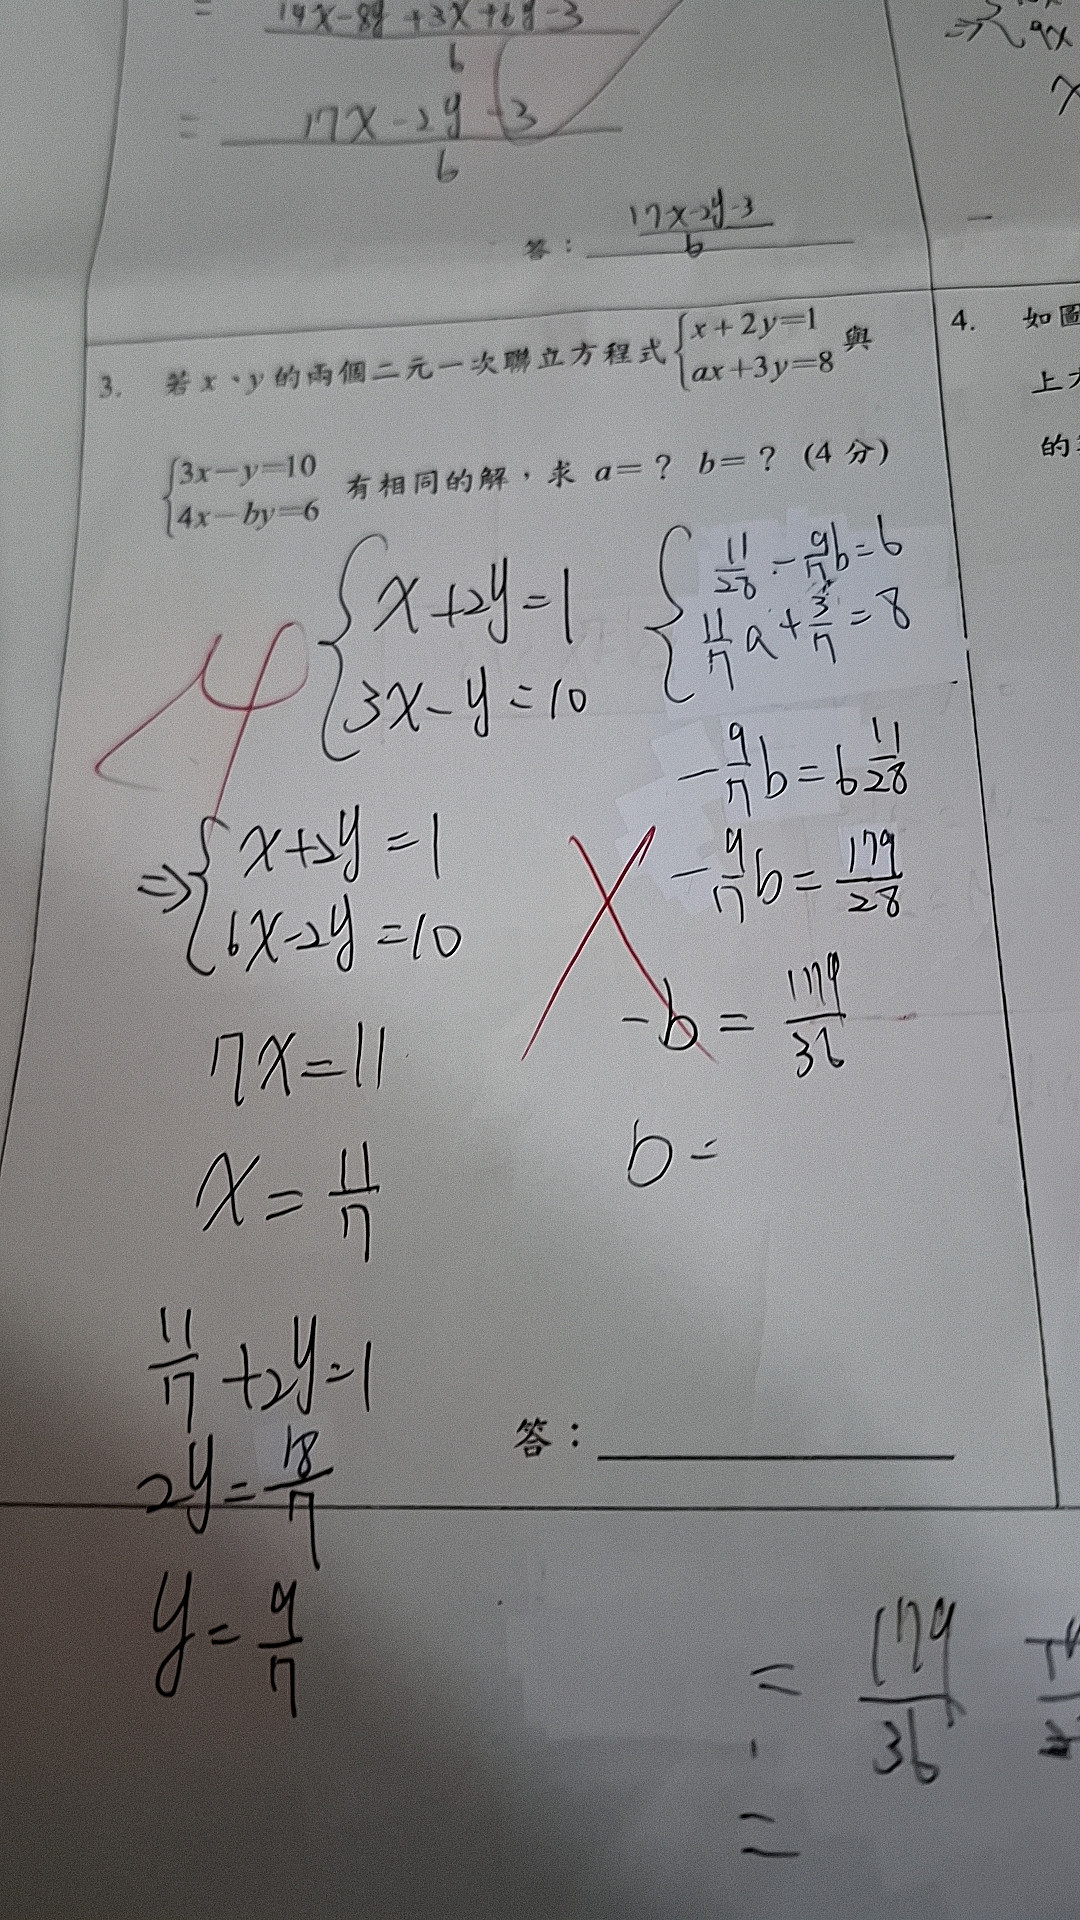 = 14x-8y+3x+6y-3 / 6
= 17x-2y-3 / 6
答： 17x-2y-3 / 6
3. 若 x、y 的兩個二元一次聯立方程式 { x+2y=1 ax+3y=8 與
{ 3x-y=10 4x-by=6 有相同的解，求 a=? b=? (4 分)
{ x+2y=1
3x-y=10
⇒ { x+2y=1
6x-2y=10
7x=11
x= 11/7
11/7 +2y=1
2y= 18/7
y= 9/7
{ 11/28 - 9/7 b=6
11/7 a + 3/7 = 8
- 9/7 b = 6 11/28
- 9/7 b = 179/28
-b = 179/36
b=
答：
= 179/36
=
4. 如圖
上
的
⇒ { 9x
x